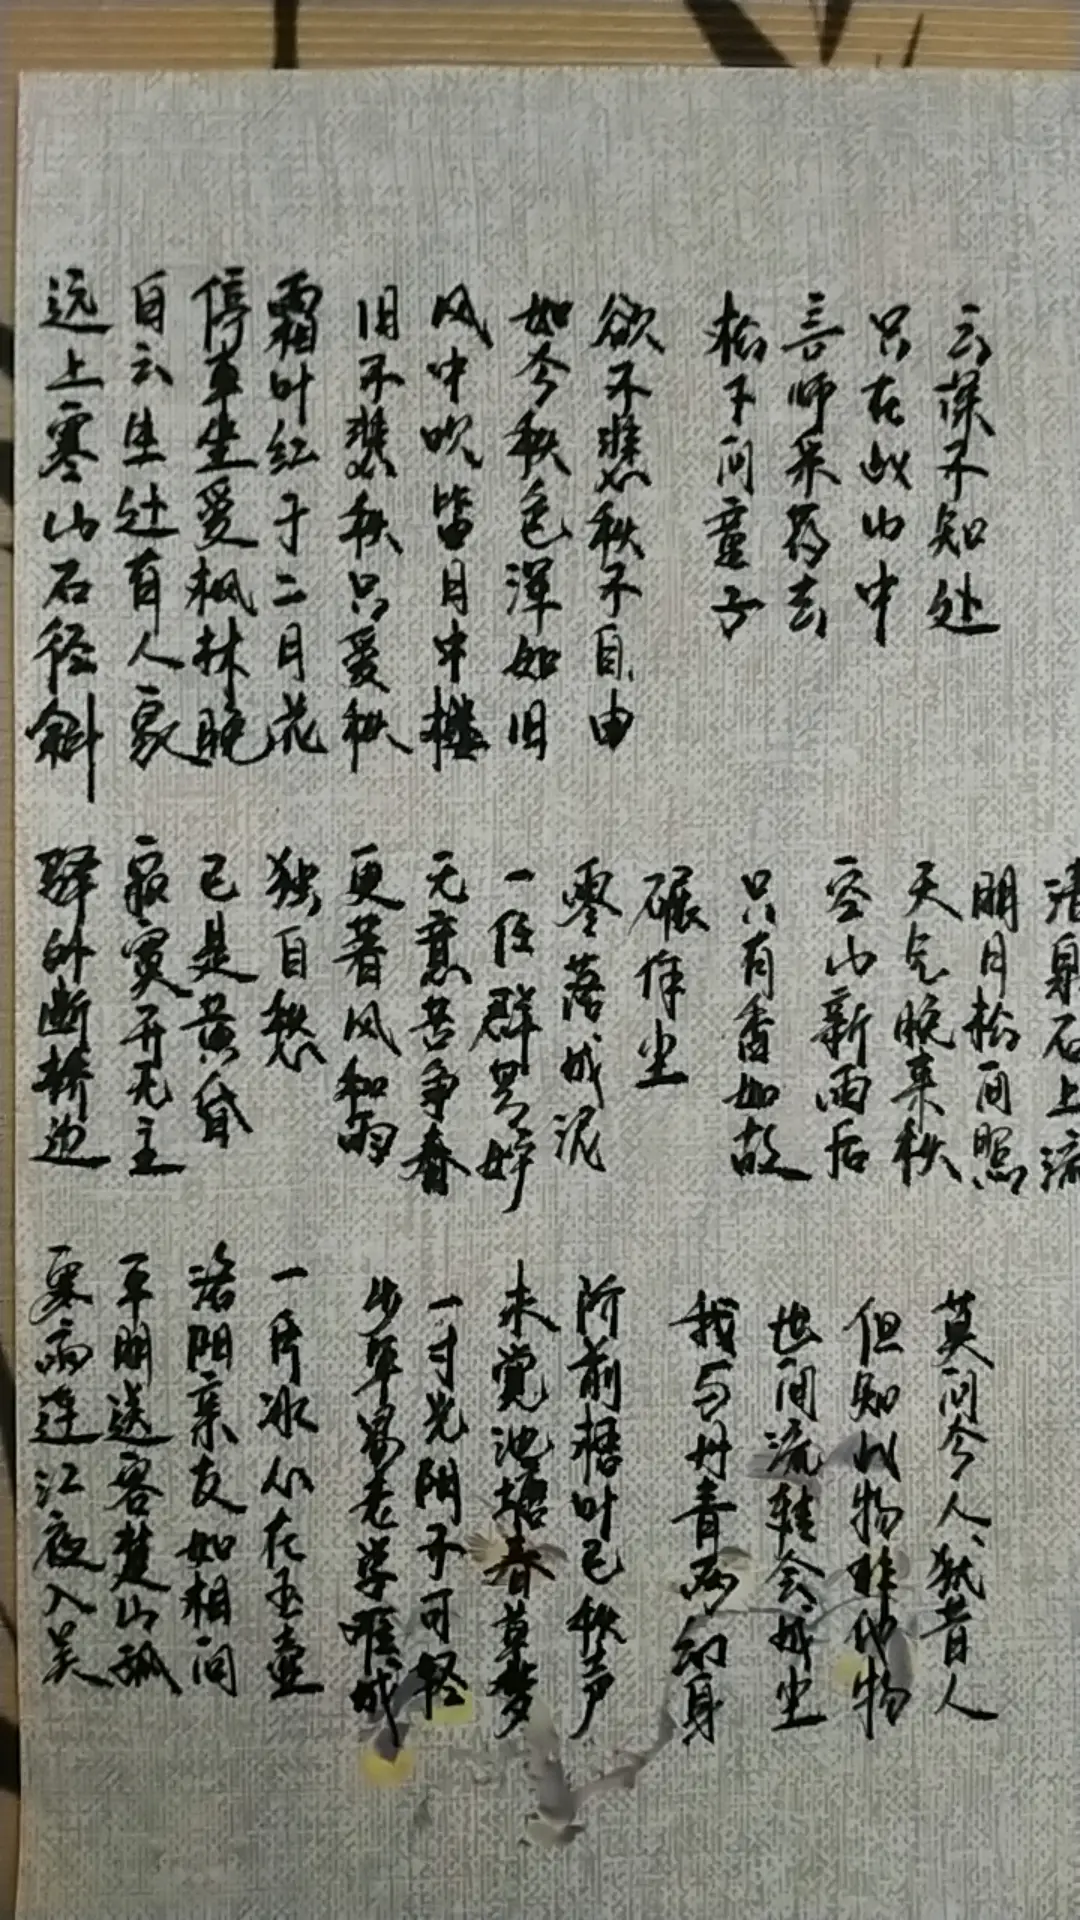 远上寒山石径斜
白云生处有人家
停车坐爱枫林晚
霜叶红于二月花
旧不悲秋只爱秋
风中吹笛月中楼
如今秋色浑如旧
欲不悲秋不自由
松下问童子
言师采药去
只在此山中
云深不知处
驿外断桥边
寂寞开无主
已是黄昏
独自愁
更著风和雨
无意苦争春
一任群芳妒
零落成泥
碾作尘
只有香如故
空山新雨后
天气晚来秋
明月松间照
清泉石上流
寒雨连江夜入吴
平明送客楚山孤
洛阳亲友如相问
一片冰心在玉壶
少年易老学难成
一寸光阴不可轻
未觉池塘春草梦
阶前梧叶已秋声
我与丹青两幻身
世间流转会成尘
但知此物非他物
莫问今人犹昔人